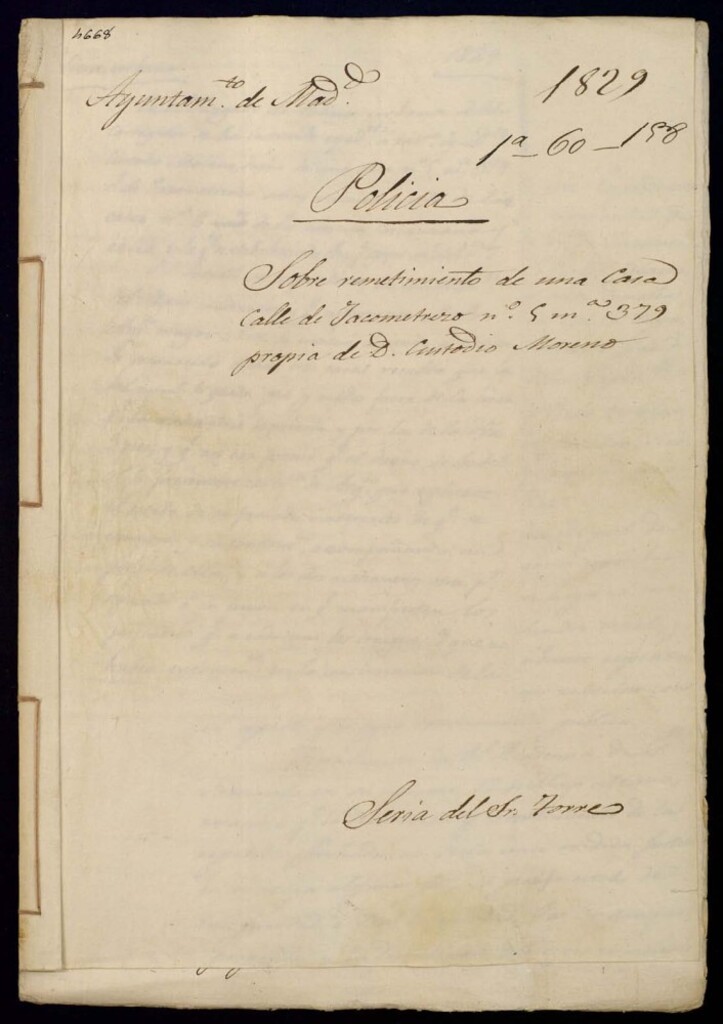 4668
Ayuntam.to de Mad.d
1829
1a-60-158
Policia
Sobre remetimiento de una Casa
Calle de Jacometrezo nº. 5 m.a 379
propia de D. Custodio Moreno
Seria del Sr. Torre